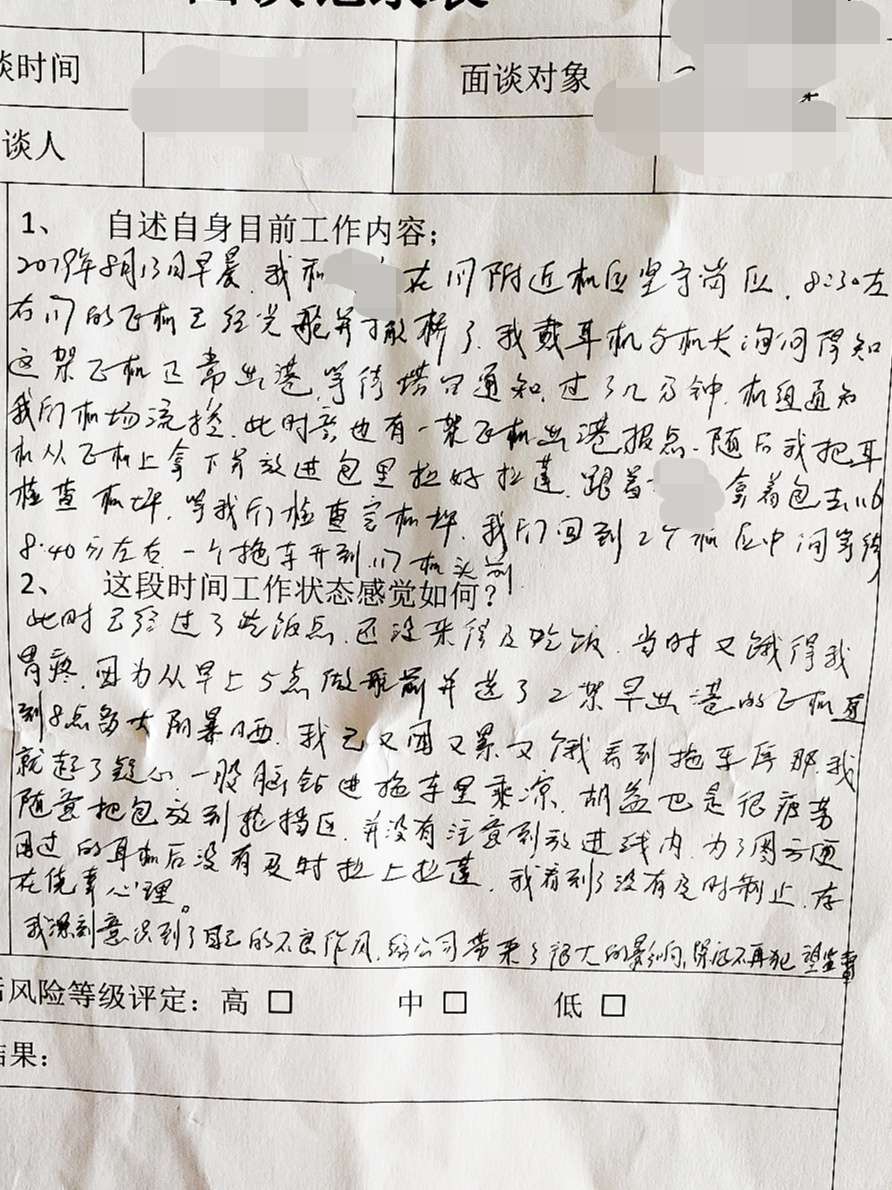 面谈记录表
谈时间
面谈对象
谈人
1、 自述自身目前工作内容；
2019年8月13日早晨，我和 在117附近机位坚守岗位，8:30左
右117的飞机已经关舱并撤桥了，我戴耳机与机长询问得知
这架飞机正常出港，等待塔台通知，过了几分钟，机组通知
我们机场流控，此时旁边有一架飞机出港报点，随后我把耳
机从飞机上拿下并放进包里拉好拉莲，跟着 拿着包去116
检查机坪，等我们检查完机坪，我们回到2个机位中间等待，
8:40分左右，一个拖车开到117机头前
2、 这段时间工作状态感觉如何？
此时已经过了些饭点，还没来得及吃饭，当时又饿得我
胃疼，因为从早上5点做航前并送了2架早出港的飞机直
到8点多太阳暴晒，我已又困又累又饿看到拖车停那，我
就起了疑心，一股脑钻进拖车里乘凉， 也是很疲劳
随意把包放到轮挡区，并没有注意到放进线内，为了图方便
用过的耳机后没有及时拉上拉莲，我看到了没有及时制止，存
在侥幸心理。
我深刻意识到了自己的不良作风，给公司带来了很大的影响，保证不再犯，望监督
后风险等级评定：高 □ 中 □ 低 □
结果：